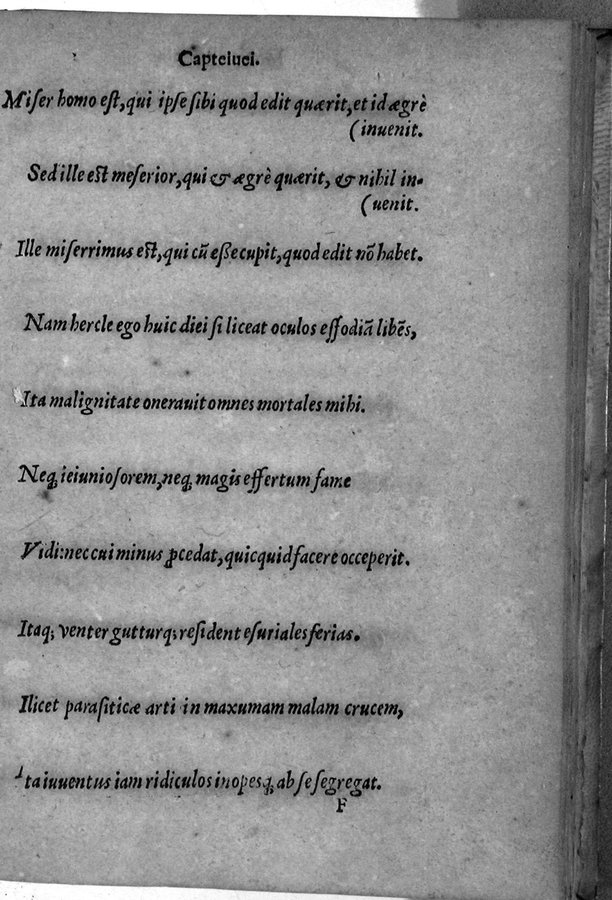 Capteiuei.
Miser homo est, qui ipse sibi quod edit quærit, et id ægrè
(inuenit.
Sed ille est meserior, qui & ægrè quærit, & nihil in-
(uenit.
Ille miserrimus est, qui cũ esse cupit, quod edit nõ habet.
Nam hercle ego huic diei si liceat oculos effodiã libẽs,
Ita malignitate onerauit omnes mortales mihi.
Neq; ieiuniosorem, neq; magis effertum fame
Vidi: nec cui minus ꝓcedat, quicquid facere occeperit.
Itaq; venter gutturq; resident esuriales ferias.
Ilicet parasiticæ arti in maxumam malam crucem,
Ita iuuentus iam ridiculos inopesq; ab se segregat.
F